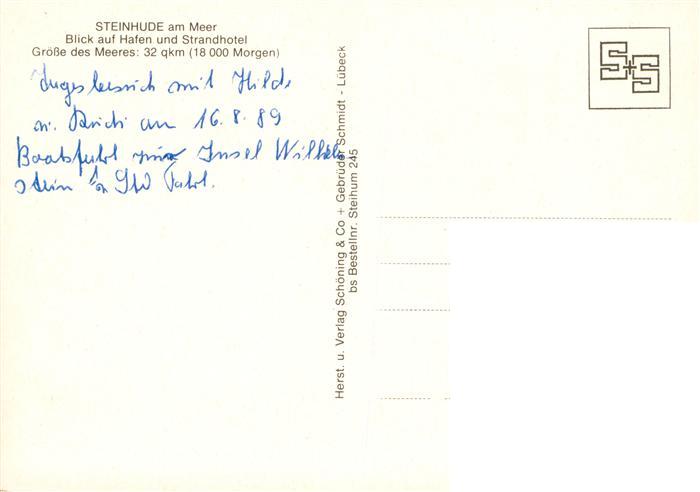 STEINHUDE am Meer
Blick auf Hafen und Strandhotel
Größe des Meeres: 32 qkm (18 000 Morgen)
mit Hilde
u. am 16.8.89
Bootsfahrt zur Insel Wilhelm
stein Std Fahrt.
Herst. u. Verlag Schöning & Co + Gebrüder Schmidt - Lübeck
bs Bestellnr. Steihum 245
S+S